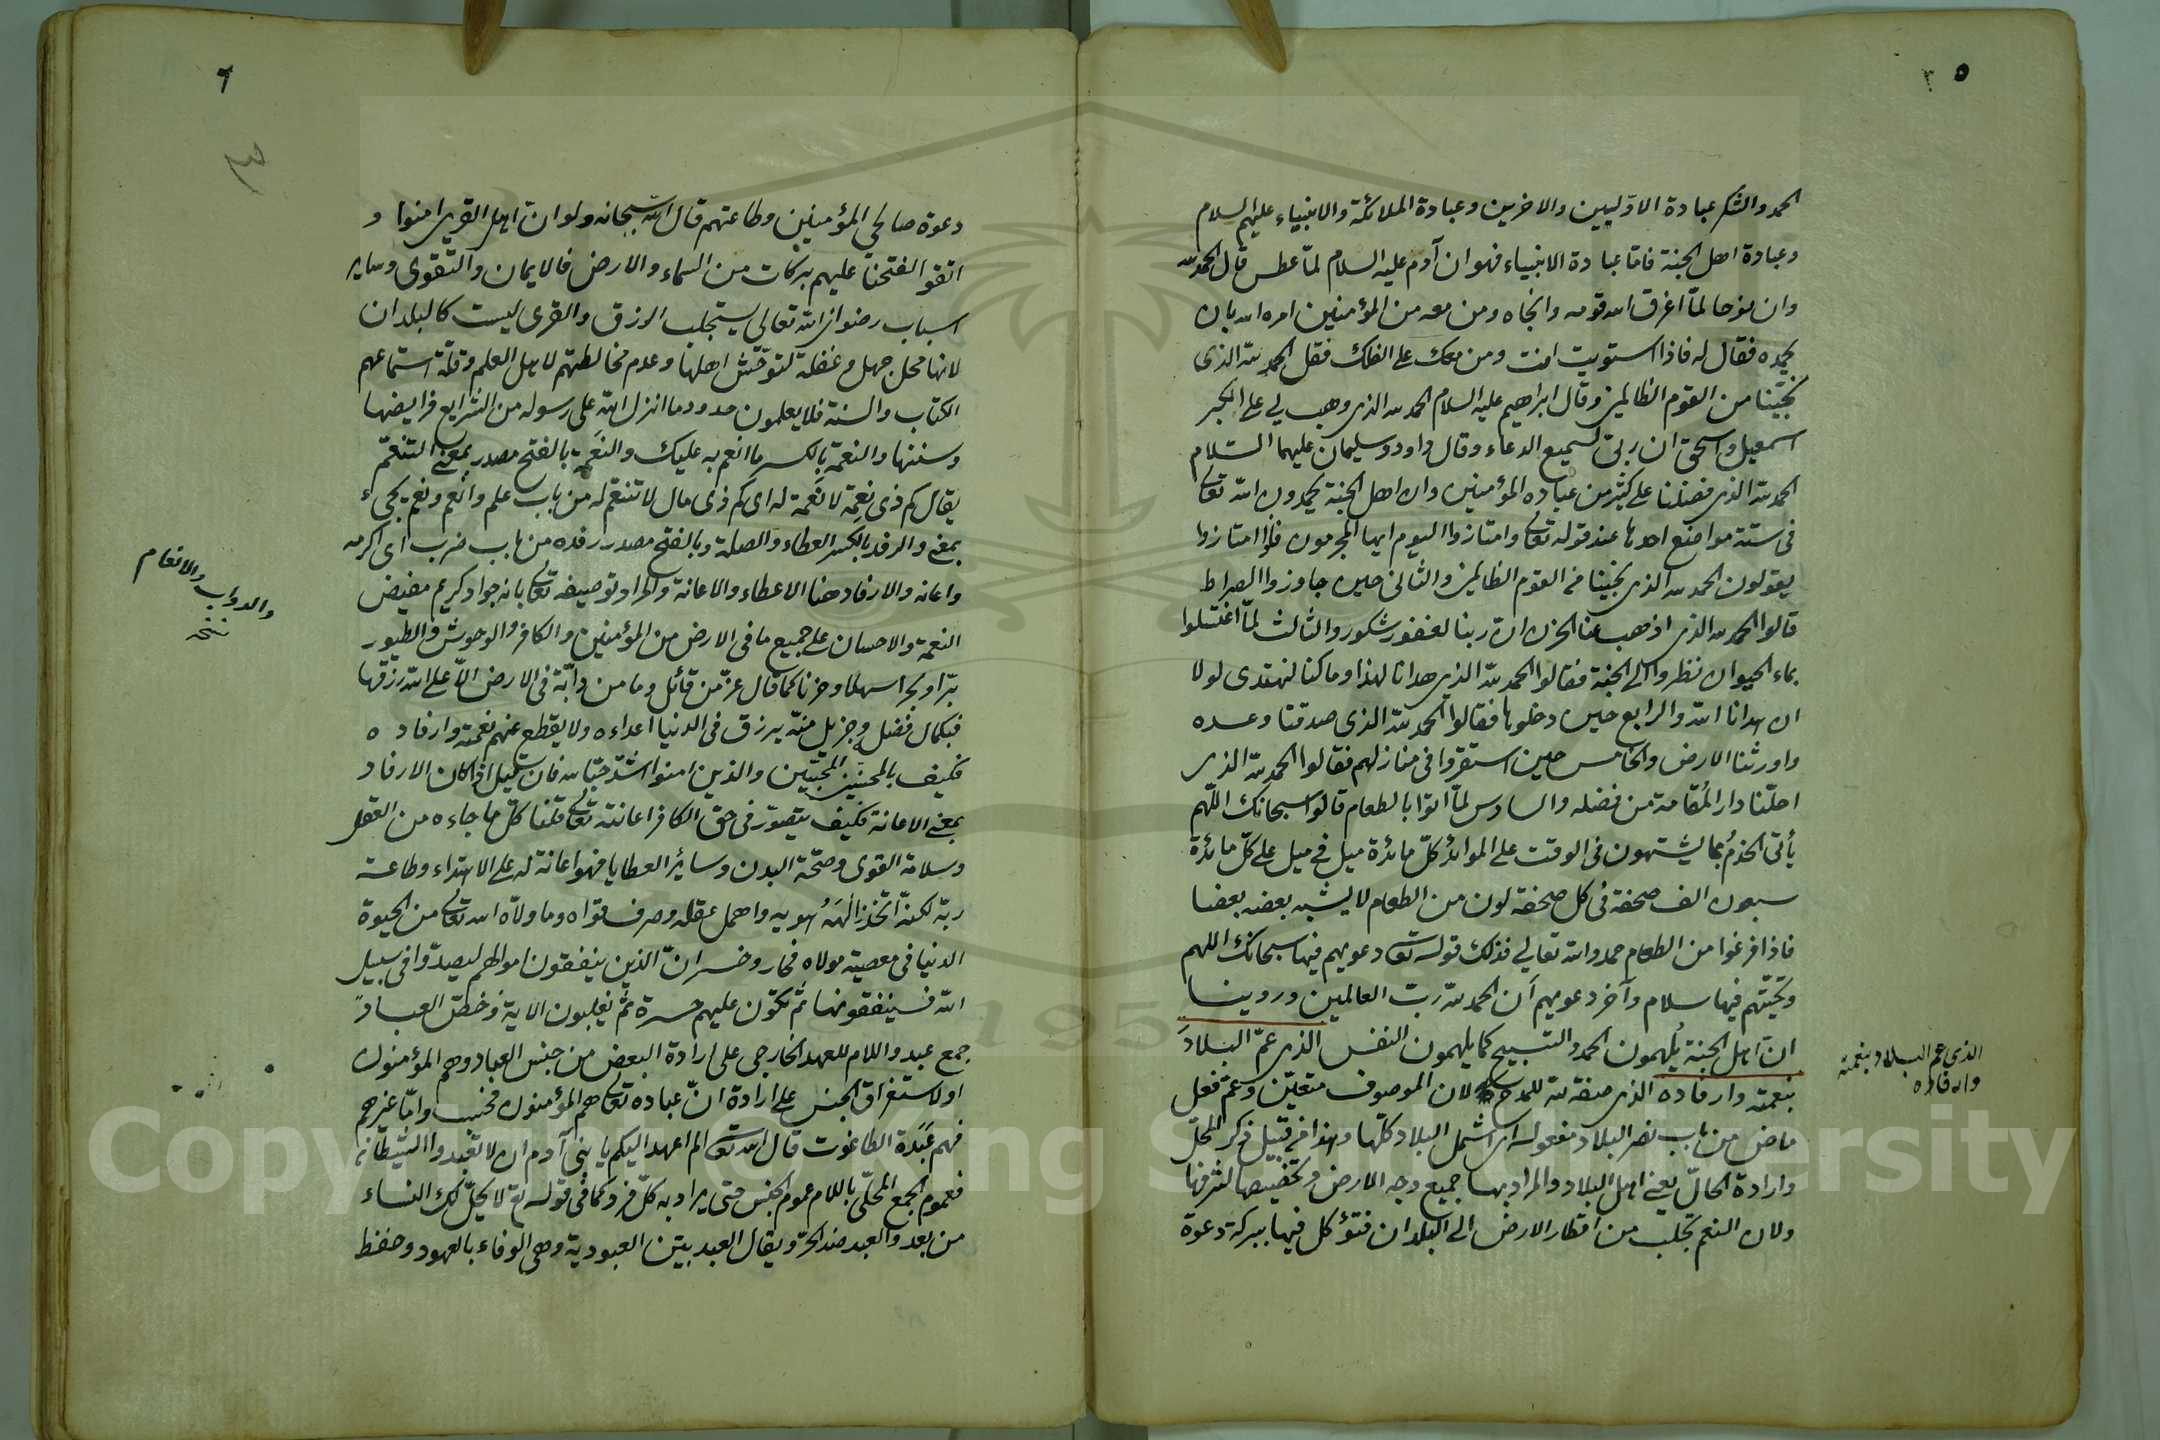 ٥
٣
الحمد والشكر عبادة الاوّليين والاخرين وعبادة الملائكة والانبياء عليهم السلام
وعبادة اهل الجنة فامّا عبادة الانبياء فهو ان آدم عليه السلام لمّا عطس قال الحمد لله
وان نوحا لمّا اغرق الله قومه وانجاه ومن معه من المؤمنين امره الله بان
يحمده فقال له فاذا استويت انت ومن معك على الفلك فقل الحمد لله الذى
نجّينا من القوم الظالمين وقال ابراهيم عليه السلام الحمد لله الذى وهب لي على الكبر
اسمعيل واسحق ان ربّى لسميع الدعاء وقال داود وسليمان عليهما السّلام
الحمد لله الذى فضلنا على كثير من عباده المؤمنين وان اهل الجنة يحمدون الله تعا
فى ستة مواضع احدها عند قوله تعا وامتازوا اليوم ايها المجرمون فلمّا امتازوا
يقولون الحمد لله الذى نجّينا من القوم الظالمين والثانى حين جاوزوا الصراط
قالوا الحمد لله الذى اذهب عنا الحزن ان ربنا لغفور شكور والثالث لمّا اغتسلوا
بماء الحيوان نظروا الى الجنة فقالوا الحمد لله الذى هدانا لهذا وما كنا لنهتدى لولا
ان هدانا الله والرابع حين دخلوها فقالوا الحمد لله الذى صدقنا وعده
واورثنا الارض والخامس حين استقروا فى منازلهم فقالوا الحمد لله الذى
احلّنا دار المُقامة من فضله والسادس لمّا اتوا بالطعام قالوا سبحانك اللّهم
يأتى الخدمُ بما يشتهون فى الوقت على الموائد كلّ مائدة ميل فى ميل على كلّ مائدة
سبعون الف صحفة فى كل صحفة لون من الطعام لا يشبه بعضه بعضا
فاذا فرغوا من الطعام حمدوا الله تعالي فذلك قوله تعا دعويهم فيها سبحانك اللهم
وتحيّتهم فيها سلام وآخر دعويهم أن الحمد لله ربّ العالمين وروينا
انّ اهل الجنة يُلهمون الحمد والتسبيح كما يلهمون النفس الذى عمّ البلادَ
بنعمته وارفاده الذى صفة لله للمدح لان الموصوف متعيّن وعمّ فعل
ماض من باب نصر البلاد مفعوله اى شمل البلاد كلّها وهذا من قبيل ذكر المحلّ
وارادة الحالّ يعنى اهل البلاد والمراد بها جميع وجه الارض وتخصيصها لشرفها
ولان النعم تجلب من اقطار الارض الى البلدان فتؤكل فيها ببركة دعوة
الذى عم البلاد بنعمته
وارفاده
٦
دعوة صالحي المؤمنين وطاعتهم قال الله سبحانه ولو ان اهل القرى امنوا و
اتقوا لفتحنا عليهم بركات من السماء والارض فالايمان والتقوى وساير
اسباب رضوان الله تعالي يستجلب الرزق والقرى ليست كالبلدان
لانها محل جهل وغفلة لتوحّش اهلها وعدم مخالطتهم لاهل العلم وقلّة استماعهم
الكتاب والسنة فلا يعلمون حدود ما انزل الله على رسوله من الشرايع فرايضها
وسننها والنعمة بالكسر ما انعم به عليك والنَعمة بالفتح مصدر بمعنى التنعّم
يقال كم ذى نِعمة لا نَعمة له اى كم ذى مال لا تنعّم له من باب علم وانعم ونعّم يجىء
بمعنى والرفد بالكسر العطاء والصلة وبالفتح مصدر رفده من باب ضرب اى اكرمه
واعانه والارفاد هنا الاعطاء والاعانة والمراد توصيفه تعا بانه جواد كريم مفيض
النعمة والاحسان على جميع ما فى الارض من المؤمنين والكافر والوحوش والطيور
برّا وبحرا سهلا وحزنا كما قال عزّ من قائل وما من دابّة فى الارض الّا على الله رزقها
فبكمال فضل وجزيل منّه يرزق فى الدنيا اعداءه ولا يقطع عنهم نعمته وارفاده
فكيف بالمحسنين المحبّين والذين امنوا اشدّ حبّا لله فان قيل اذا كان الارفاد
بمعنى الاعانة فكيف يتصوّر فى حق الكافر اعانته تعا قلنا كلّ ما جاءه من العقل
وسلامة القوى وصحّة البدن وسائر العطايا فهو اعانة له على الاهتداء وطاعة
ربّه لكنه اتّخذ الٰهَهُ هويه واهمل عقله وصرف قواه وما ولّاه الله تعا من الحيوة
الدنيا فى معصية مولاه فخار وخسر ان الذين ينفقون اموالهم ليصدّوا فى سبيل
الله فسينفقونها ثم تكون عليهم حسرة ثمّ يغلبون الاية وخصّ العبادَ
جمع عبد واللام للعهد الخارجى على ارادة البعض من جنس العباد وهم المؤمنون
او لاستغراق الجنس على ارادة انّ عباده تعا هم المؤمنون فحسب وامّا غيرهم
فهم عَبَدة الطاغوت قال الله تعا الم اعهد اليكم يا بنى آدم ان لا تعبدوا الشيطان
فعموم الجمع المحلّى باللام عموم الجنس حتى يراد به كلّ فرد كما فى قوله تع لا يحلّ لك النساء
من بعد والعبد ضد الحرّ ويقال العبد بيّن العبودية وهى الوفاء بالعهود وحفظ
والدواب والانعام
نسخه
Copyright © King Saud University
195